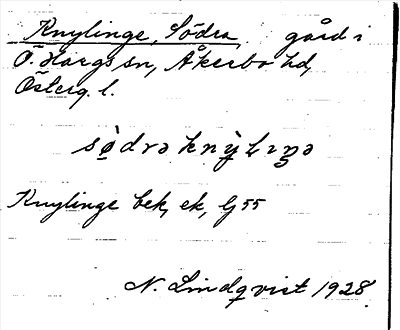 Knylinge, Södra gård i
Ö. Hargs sn, Åkerbo hd,
Österg. l.
Knylinge bek, ek, Gj 55
N. Lindqvist 1928